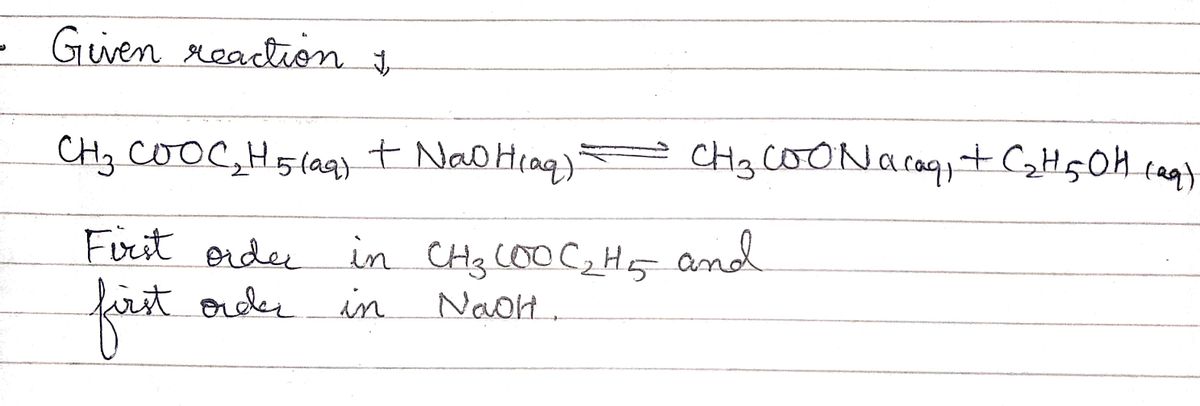 Given reaction is,
CH₃COOC₂H₅(aq) + NaOH(aq) ⇌ CH₃COONa(aq) + C₂H₅OH(aq)
First order in CH₃COOC₂H₅ and
first order in NaOH.